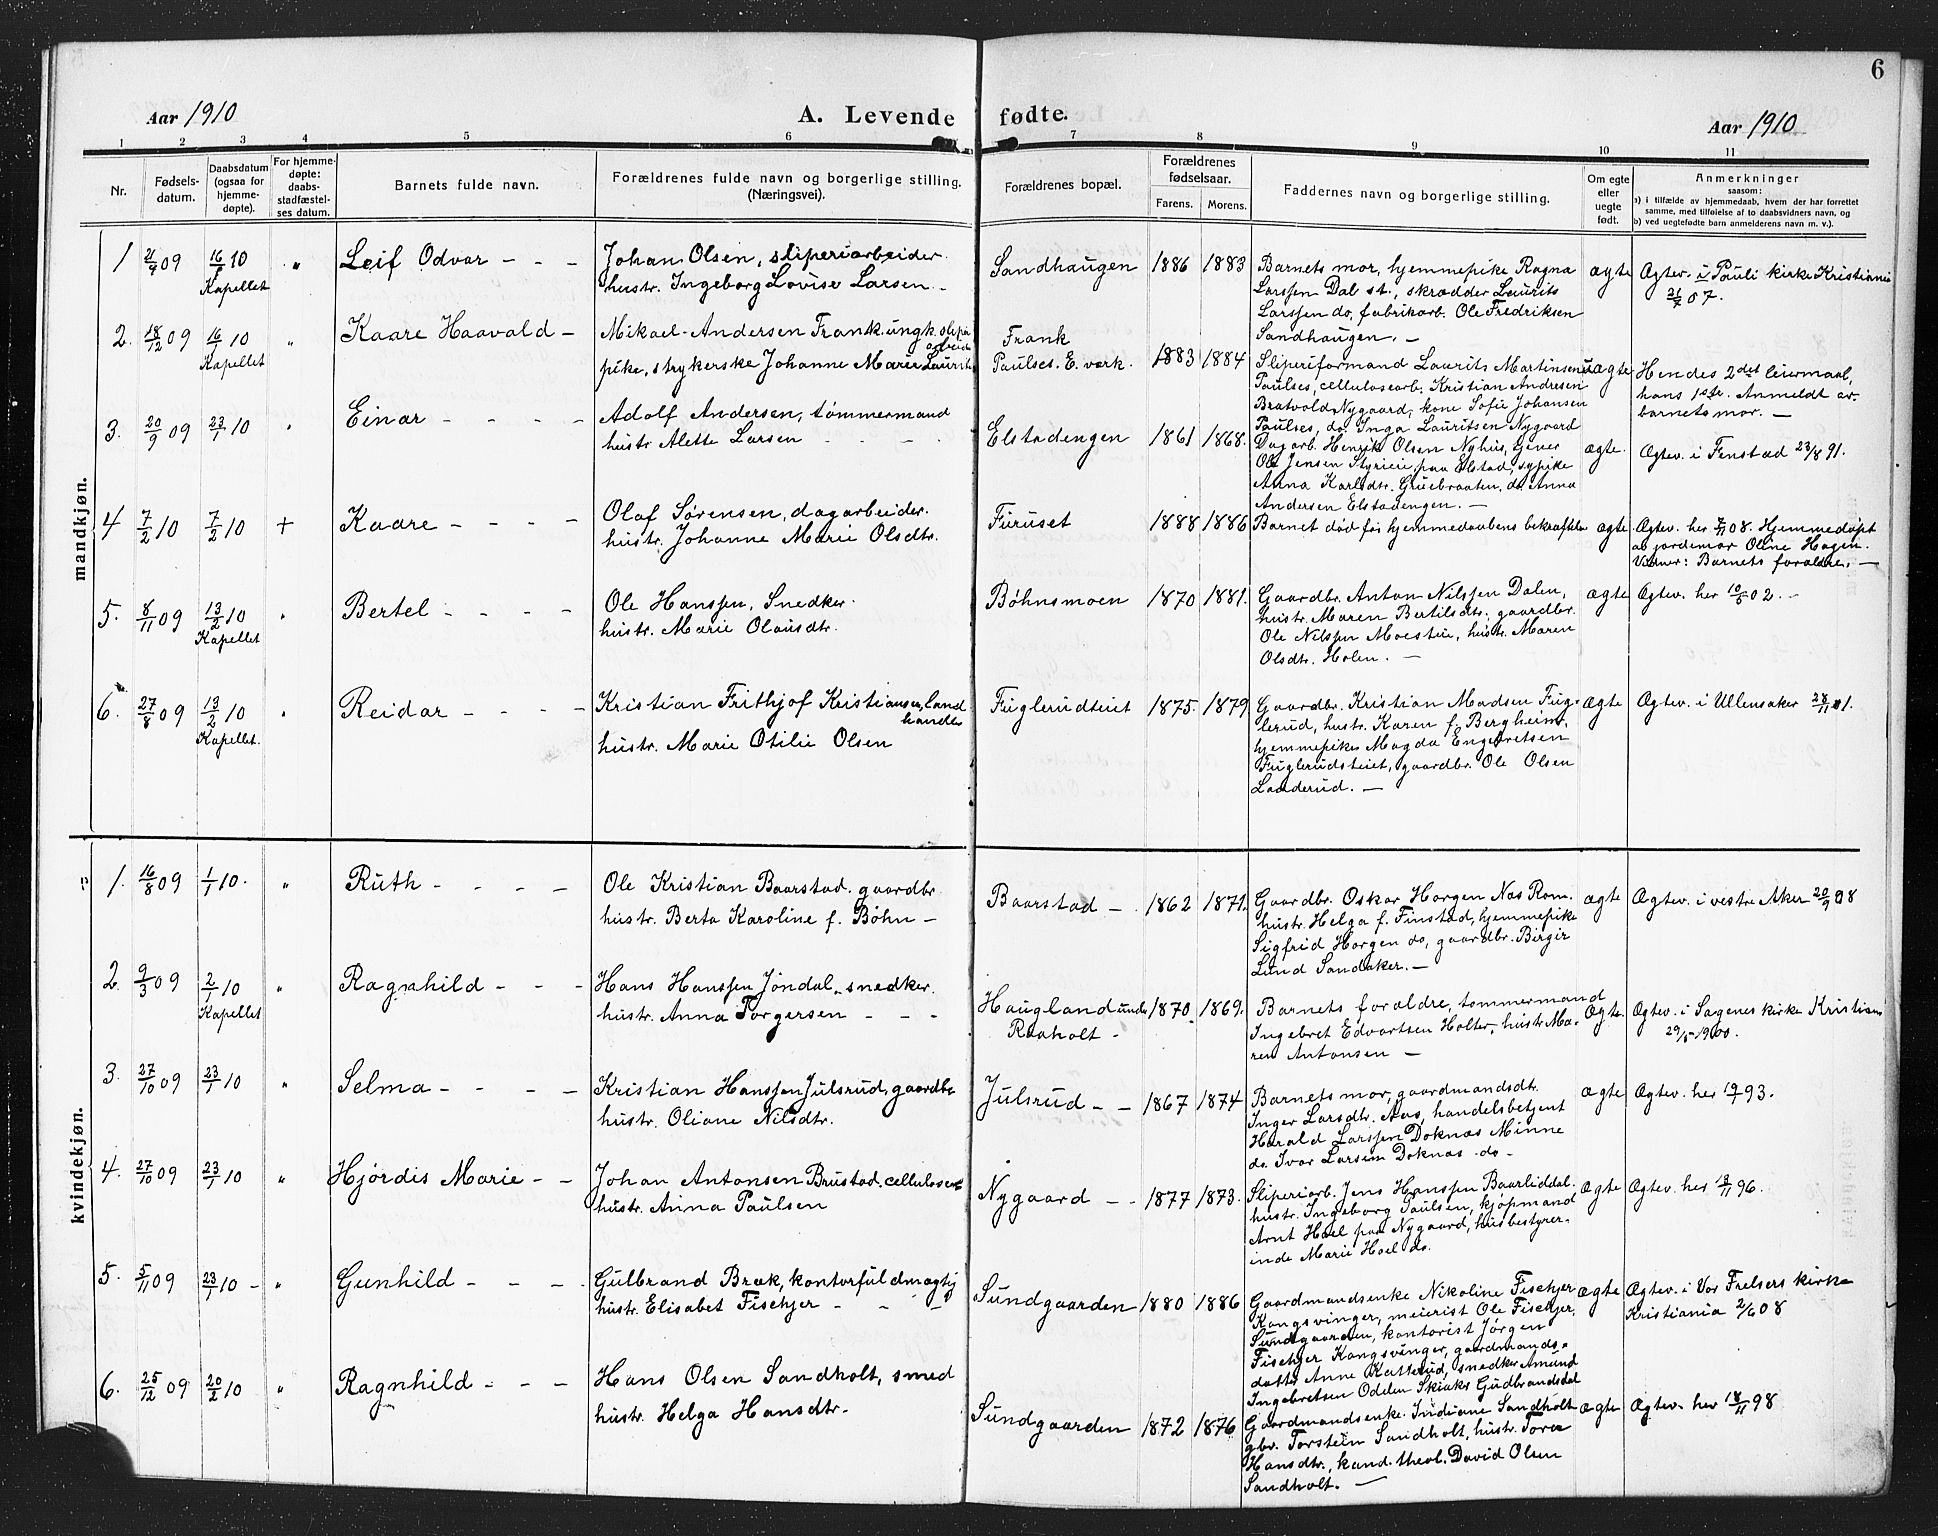 6
Aar 1910
A. Levende fødte.
Aar 1910
1 2 3 4 5 6 7 8 9 10 11
Nr.
Fødsels-
datum.
Daabsdatum
(ogsaa for
hjemme-
døpte).
For hjemme-
døpte:
daabs-
stadfæstel-
ses datum.
Barnets fulde navn.
Forældrenes fulde navn og borgerlige stilling.
(Næringsvei).
Forældrenes bopæl.
Forældrenes
fødselsaar.
Farens. Morens.
Faddernes navn og borgerlige stilling.
Om egte
eller
uegte
født.
Anmerkninger
saasom:
a) i tilfælde av hjemmedaab, hvem der har forrettet
samme, med tilføielse af to daabsvidners navn, og
b) ved uegtefødte barn anmelderens navn m. v.).
mandkjøn.
1 21/9 09 16/1 10 Kapellet " Leif Odvar - - -
Johan Olsen, sliperiarbeider.
hustr. Ingeborg Lovise Larsen -
Sandhaugen 1886 1883
Barnets mor, hjemmepike Ragna
Larssen Dal st., skrædder Laurits
Larssen do, fabrikarb. Ole Fredriksen
Sandhaugen. -
ægte
Ægtev. i Pauli kirke Kristiania
21/7 07.
2. 18/12 09 16/1 10 Kapellet " Kaare Haavald -
Mikael Andersen Frank, ungk. sliperi
arbeider
pike, strykerske Johanne Marie Laurits
Frank
Paulses. E. verk. 1883 1884
Sliperiformand Laurits Martinsen
Paulses, cellulosearb. Kristian Andresen
Bratvold Nygaard, kone Sofie Johansen
Paulses, do. Inga Lauritsen Nygaard
uægte
Hendes 2det leiermaal,
hans 1ste. Anmeldt av
barnets mor. -
3. 20/9 09 23/1 10 " Einar - - - -
Adolf Andersen, tømmermand
hustr. Alette Larsen - - -
Elstadengen 1861 1868.
Dagarb. Henrik Olsen Nyhus,
Ole Jensen paa Elstad, sypike
Anna Karlsdtr. Gruebraaten, do. Anna
Andersen Elstadengen. -
ægte.
Ægtev. i Fenstad 23/8 91.
4 7/2 10 7/2 10 + Kaare - - - -
Olaf Sørensen, dagarbeider.
hustr. Johanne Marie Olsdtr.
Furuset 1888 1886
Barnet død før hjemmedaabens bekræftelse
ægte
Ægtev. her 08. Hjemmedøpt
av jordemor Oline Hagen.
Vidner: Barnets forældre. -
5. 8/11 09 13/2 10 Kapellet " Bertel - - - -
Ole Hanssen, Snedker.
hustr. Marie Olausdtr.
Bøhnsmoen 1870 1881.
Gaardbr. Anton Nilssen Dalen,
hustr. Maren Bertilsdtr. gaardbr.
Ole Nilssen Moestue, hustr. Maren
Olsdtr. Holen. -
ægte
Ægtev. her 10/5 02. -
6. 27/8 09 13/2 10 Kapellet. " Reidar - - - -
Kristian Frithjof Kristiansen, land
handler
hustr. Marie Otilie Olsen
Fuglerudteiet 1875. 1879
Gaardbr. Kristian Madsen Fug-
lerud, hustr. Karen f. Bergheim,
hjemmepike Magda Engebretsen
Fuglerudsteiet, gaardbr. Ole Olsen
Landerud. -
ægte
Ægtev. i Ullensaker 28/11 01.
kvindekjøn.
1. 16/8 09 1/1 10. " Ruth - - - -
Ole Kristian Baarstad. gaardbr.
hustr. Berta Karoline f. Bøhn -
Baarstad - 1862 1871.
Gaardbr. Oskar Horgen Nas Rom.
hustr. Helga f. Finstad, hjemmepike
Sigfrid Horgen do, gaardbr. Birgir
Lund Sandaker. -
ægte
Ægtev. i vestre Aker 20/9 08
2. 9/3 09 2/1 10 Kapellet " Ragnhild - - -
Hans Hanssen Jøndal, snedker.
hustr. Anna Torgersen - - -
Haugland under
Raaholt - 1870 1869.
Barnets forældre, tømmermand
Ingebret Edvartsen Holter, hustr. Ma-
ren Antonsen -
Ægte.
Ægtev. i Sagenes kirke Kristiania
29/5 1900.
3. 27/10 09 23/1 10 " Selma - - - -
Kristian Hanssen Julsrud, gaardbr
hustr. Oliane Nilsdtr.
Julsrud - - 1867 1874
Barnets mor, gaardmandsdtr.
Inger Larsdtr. Aas, handelsbetjent
Harald Larssen Doknæs Minne
do. Ivar Larssen Doknæs do -
ægte
Ægtev. her 93.
4. 27/10 09 23/1 10 " Hjørdis Marie - -
Johan Antonsen Brustad, cellulosearb
hustr. Anna Paulsen
Nygaard - - 1877 1873.
Sliperiarb. Jens Hanssen Baarliddal.
hustr. Ingeborg Paulsen, kjøpmand
Arnt Hoel paa Nygaard, husbestyrer-
inde Marie Hoel do.
ægte
Ægtev. her 96.
5. 5/11 09 23/1 10 - " Gunhild - - - -
Gulbrand Bræk, kontorfuldmægtig
hustr. Elisabet Fischjer - - -
Sundgaarden 1880 1886
Gaardmandsenke Nikoline Fischjer
Kongsvinger, meierist Ole Fischjer,
Sundgaarden, kontorist Jørgen
Fischjer Kongsvinger, gaardmands-
datter Anne Katterud, snedker Amund
Ingebretsen Odden Skiaker Gudbrandsdal
ægte
Ægtev. i Vor Frelsers kirke
Kristiania 2/6 08
6. 25/12 09 20/2 10 " Ragnhild - - -
Hans Olsen Sandholt, smed
hustr. Helga Hansdtr.
Sundgaarden 1872 1876
Gaardmandsenke. Indiane Sandholt
gbr. Torstein Sandholt, hustr. Tora
Hansdtr., kand. theol. David Olsen
Sandholt. -
ægte
Ægtev. her 18/11 98